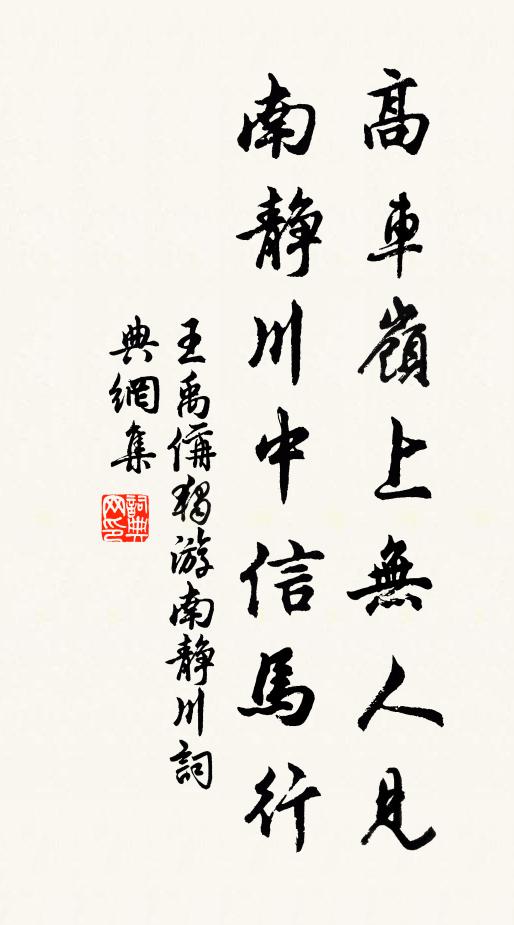 高車嶺上無人見
南靜川中信馬行
王禹偁獨游南靜川詞
典網集
詞典網印